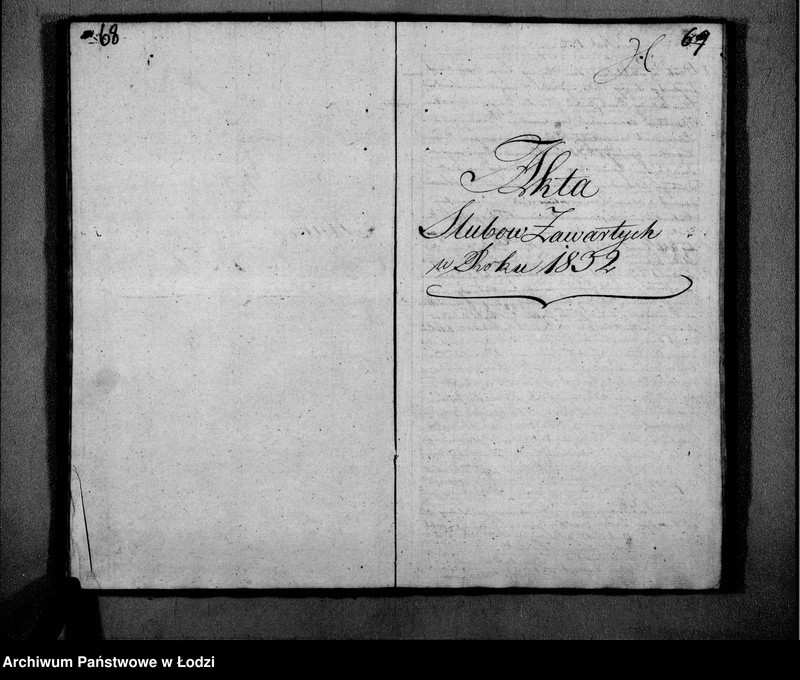 68
69
Akta
Slubow Zawartych
w Roku 1832
Archiwum Państwowe w Łodzi